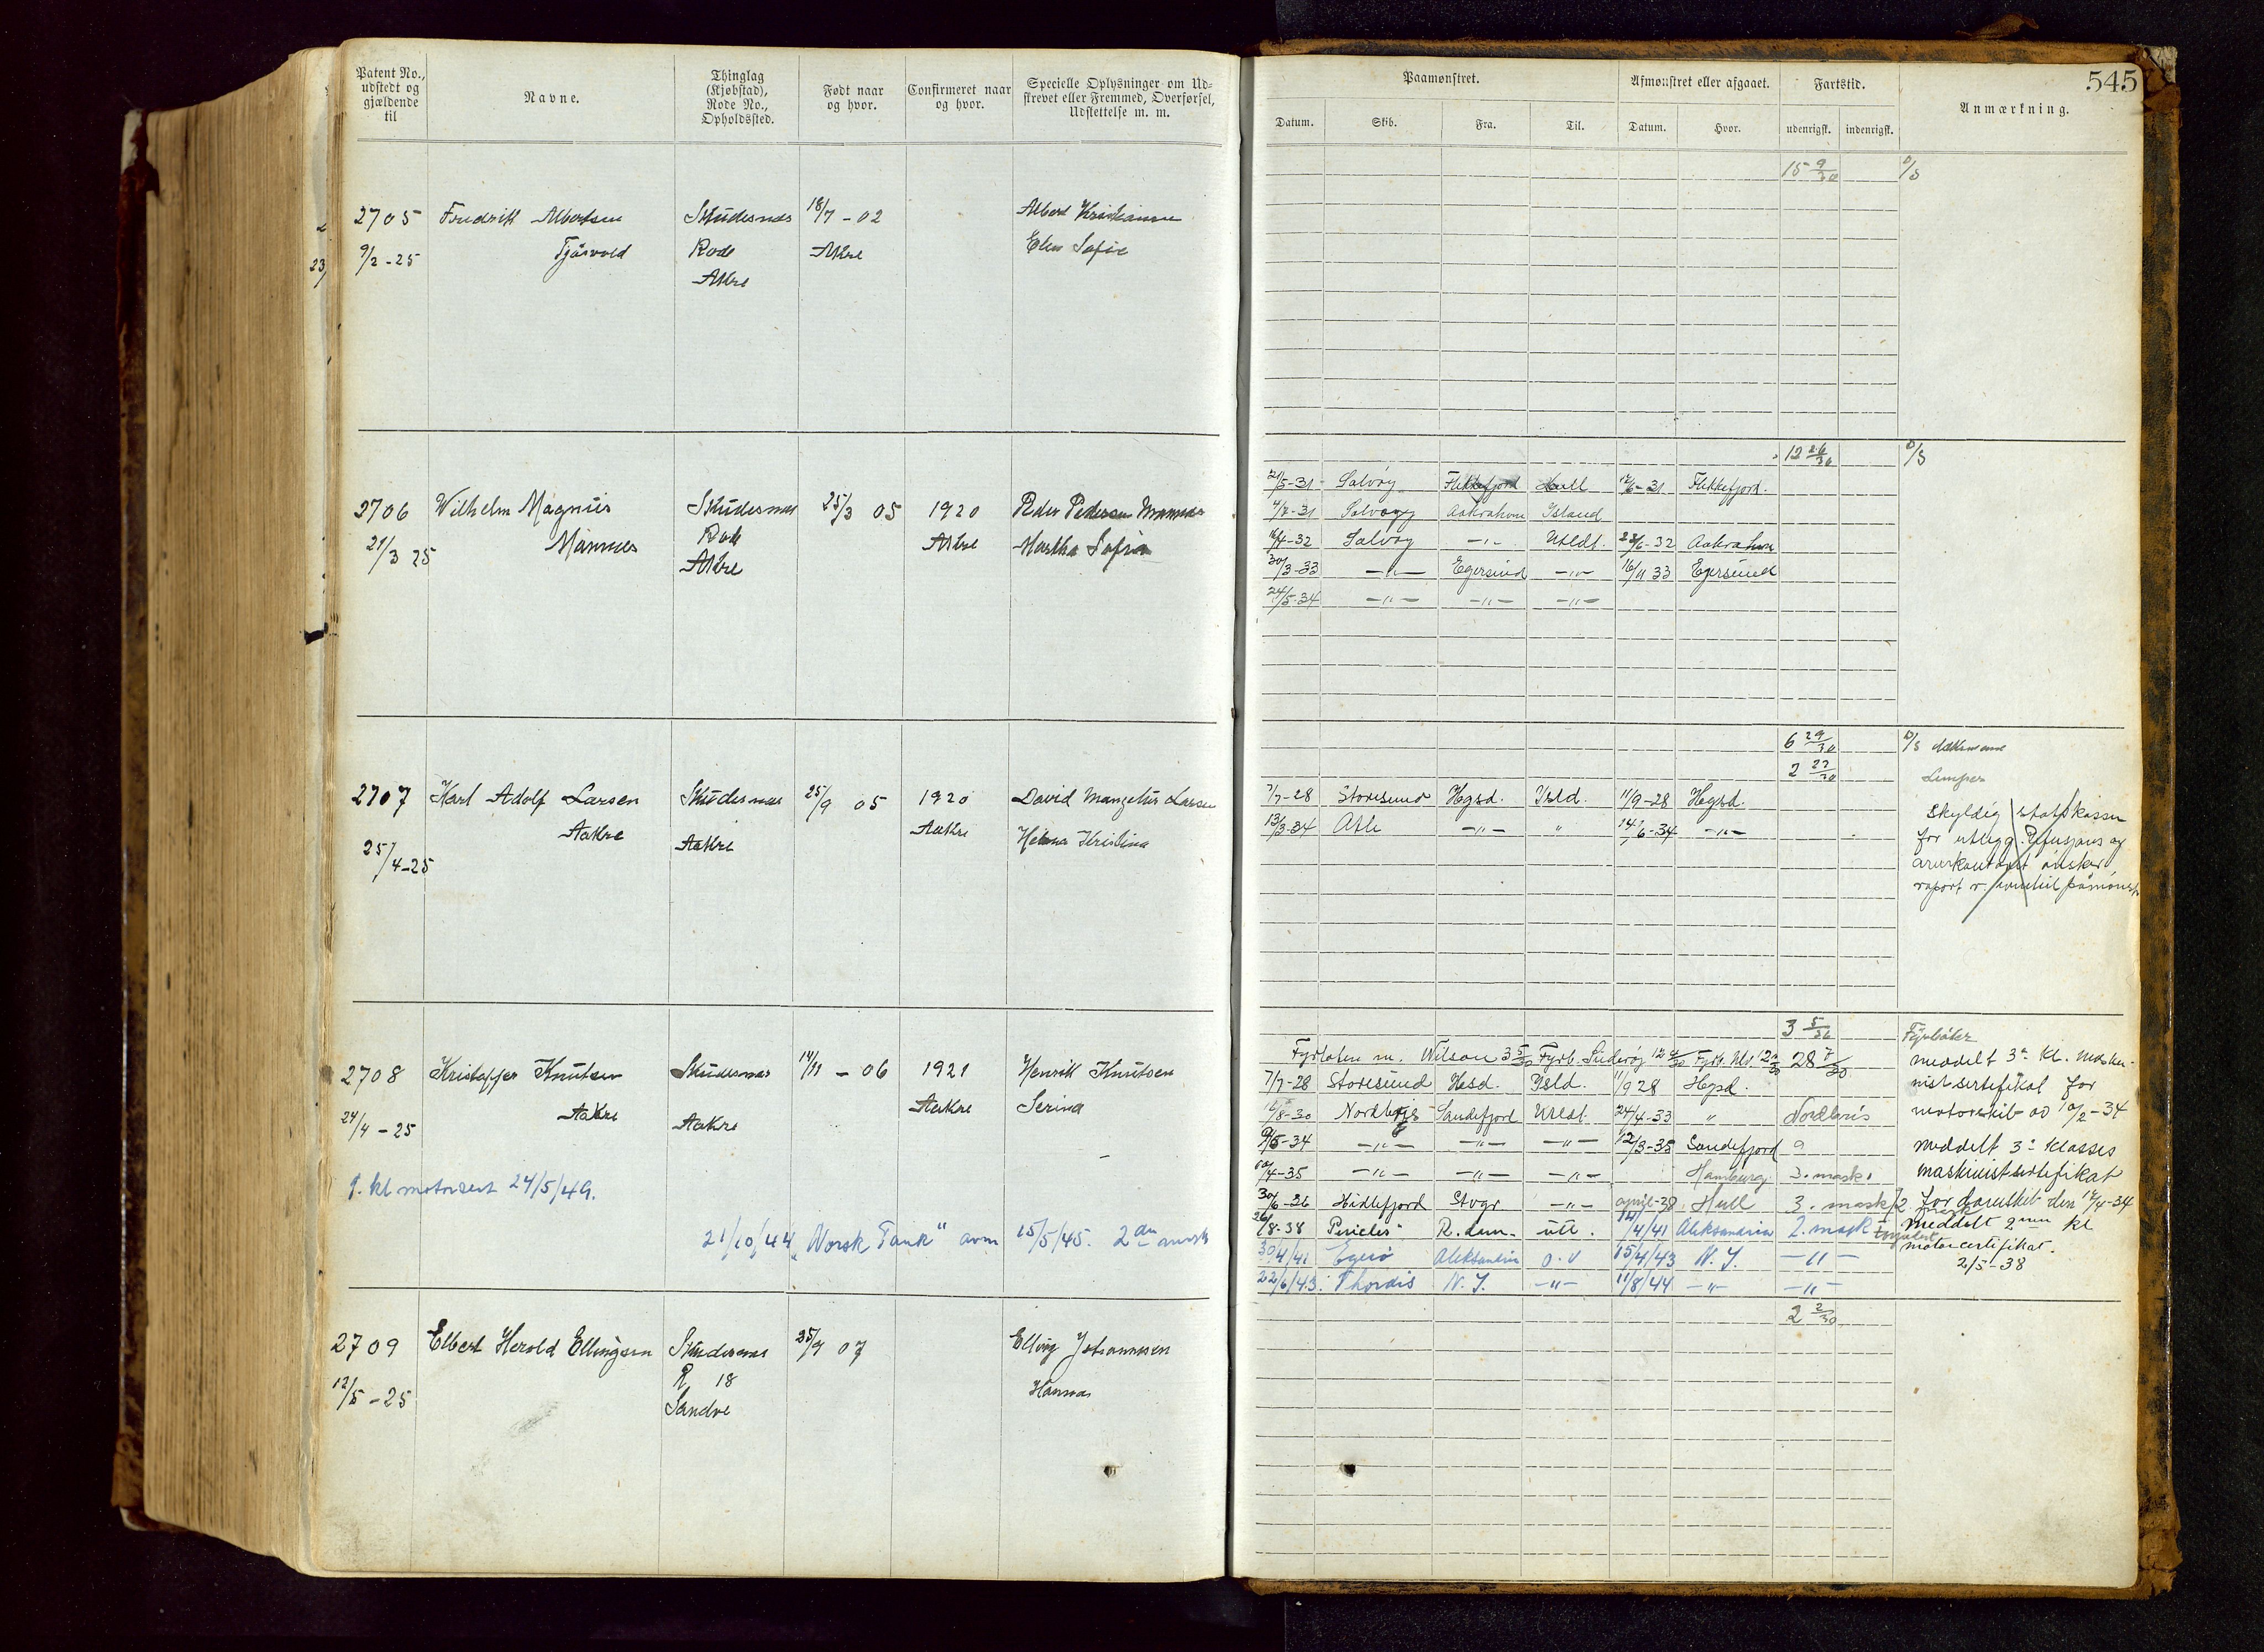 Patent No., udstedt og gjældende til
Navne.
Thinglag (Kjøbstad), Rode No., Opholdssted.
Født naar og hvor.
Confirmeret naar og hvor.
Specielle Oplysninger om Udskrevet eller Fremmed, Overførsel, Udslettelse m. m.
Paamønstret.
Afmønstret eller afgaaet.
Fartstid.
545
Anmærkning.
Datum. Skib. Fra. Til. Datum. Hvor. udenrigsk. indenrigsk.
15 9/30 D/S
2705 Fredrik Albertsen Skudesnes 18/7 - 02 Albert Kristiansen
9/2 - 25 Tjösvold Rode Akre Elen Sofie
Akre
12 26/30 D/S
2706 Wilhelm Magnus Skudesnes 25/3 05 1920 Peder Pedersen Mannes
21/3 25 Mannes Rode Akre Martha Sofie
Akre
21/5-31 Salvøy Flekkefjord Hull 12/6-31 Flekkefjord.
4/7-31 Salvøy Aakrahavn Island
16/4-32 Salvøy -"- Utldt. 28/6-32 Aakrahavn
30/3-33 -"- Egersund -"- 16/11 33 Egersund
24/5-34 -"- -"- -"-
6 29/30 D/S dekksmann
2 27/30 Lemper
2707 Karl Adolf Larsen Skudesnes 25/9 05 1920 David Mangelus Larsen
25/4-25 Aakre Aakre Aakre Helena Kristina
7/7-28 Storesund Hgsd. Isld. 11/9-28 Hgsd.
13/3-34 Atle -"- " 14/6-34 -"-
Skyldig statskassen
for utlegg. Refusjons og
ønsker
raport v. eventuel påmønstr.
3 5/26 Fyrbøter
Fyrbøter m. Wilson 3 5/30 Fyrb. Suderøy 12 4/30 28 7/30
2708 Kristoffer Knutsen Skudesnes 14/11 - 06 1921 Henrik Knutsen
24/4 - 25 Aakre Aakre Aakre Serina
7/7-28 Storesund Hesd. Isld. 11/9 28 Hgsd.
Nordlys Sandefjord Utldt. 24/4-33 " Nordlaris
9/5-34 -"- -"- -"- 12/3-35 Sandefjord
10/4-35 -"- -"- -"- Hamburg 3. mask.
30/6-36 Hidlefjord Stvgr -"- april-38 Hull 3. mask/2
26/8-38 Pericles R.dam. utl. 12/4/41 Aleksandria 2. mask
30/4/41 Egerø Aleksandria o.v 15/4/43 N.Y. -"-
22/6/43. Thordis N.Y. -"- 11/8/44 -"- -"-
meddelt 3. kl. maski-
nistsertifikat for
motorskib 10/2-34
meddelt 3. klasses
maskinistsertifikat
for dampskib den 12/4-34
Meddelt 2nen kl
motorcertifikat.
2/5-38
1. kl motorsert 24/5/49.
21/10/44 "Norsk Tank" avm 15/5/45. 2den mask
2 2/30
2709 Elbert Herold Ellingsen Skudesnes 25/9 07 Elling Johannesen
12/5 - 25 R 18 Hanna
Sandve